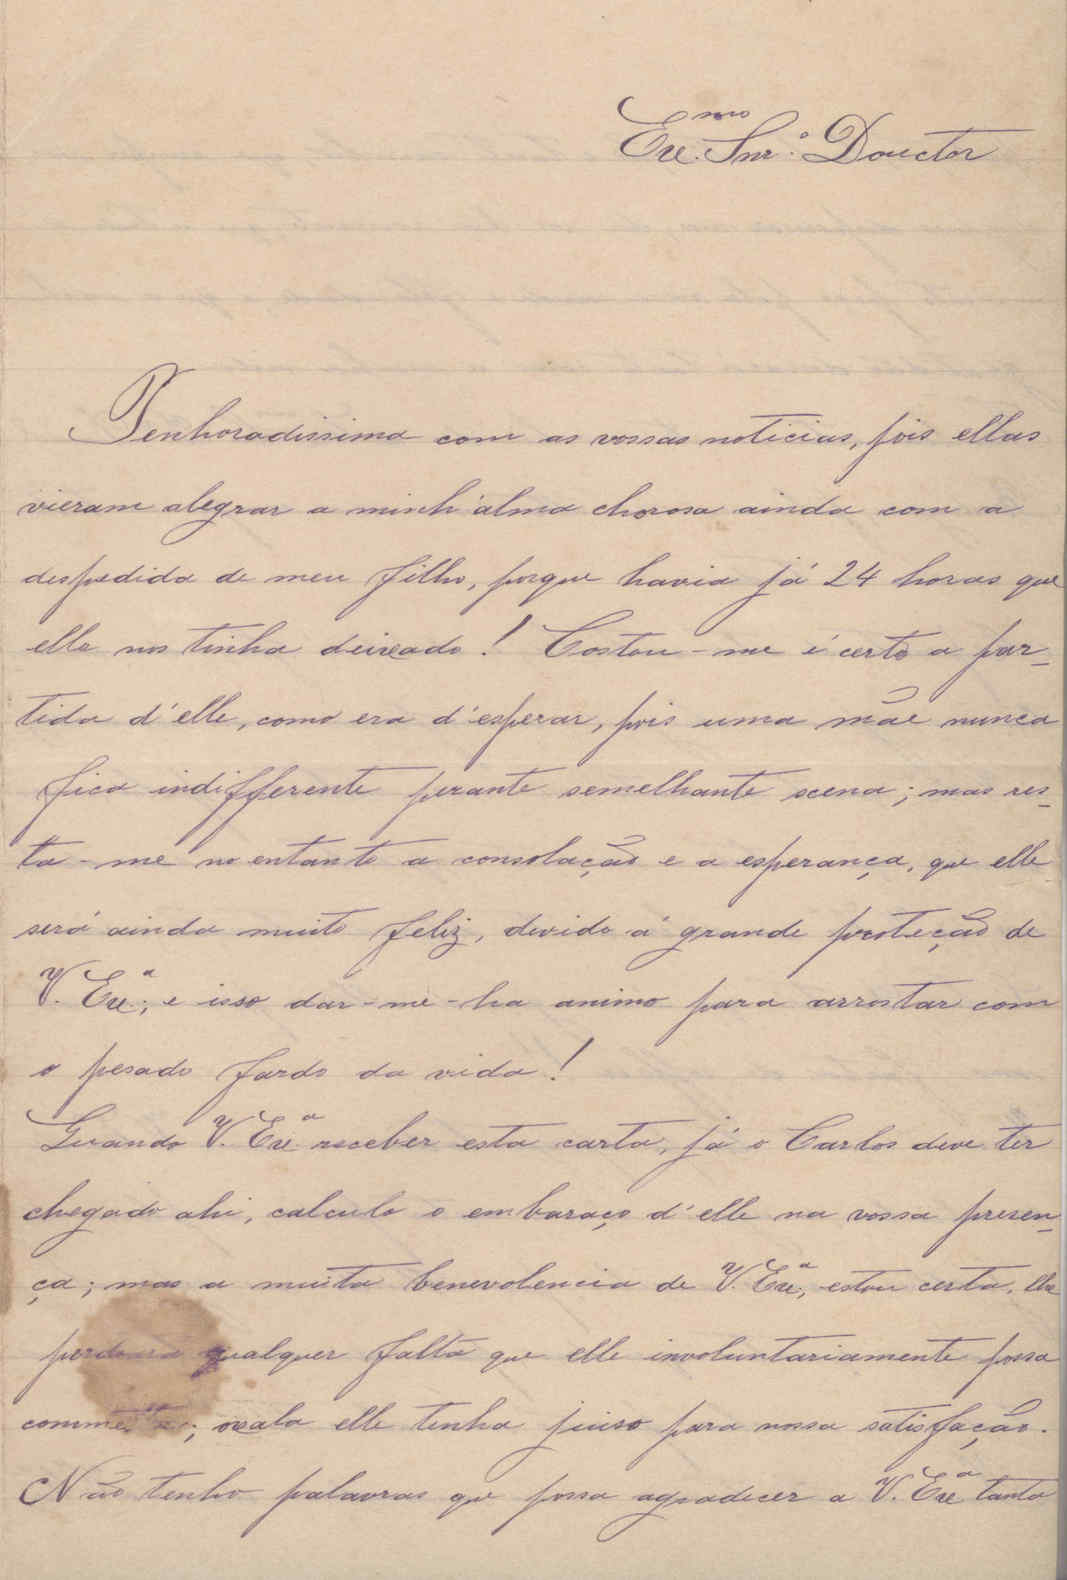 Exc.mo Snr.º Doutctor
Penhoradissima com as vossas noticias, pois ellas
vieram alegrar a minh'alma chorosa ainda com a
despedida de meu filho, porque havia já 24 horas que
elle nos tinha deixado! Costou-me é certo a par-
tida d'elle, como era d'esperar, pois uma mãe nunca
fica indifferente perante semelhante scena; mas res-
ta-me no entanto a consolação e a esperança, que elle
será ainda muito feliz, devido á grande proteção de
V. Exc.ª; e isso dar-me-ha animo para arrostar com
o pesado fardo da vida!
Quando V. Exc.ª receber esta carta, já o Carlos deve ter
chegado ahi, calculo o embaraço d'elle na vossa presen-
ça; mas a muita benevolencia de V. Exc.ª, estou certa, lhe
perdoará qualquer falta que elle involuntariamente possa
commetter; oxala elle tenha juiso para nossa satisfação.
Não tenho palavras que possa agradecer a V. Exc.ª tanta